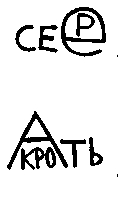 СЕРе
АКРОТЬ